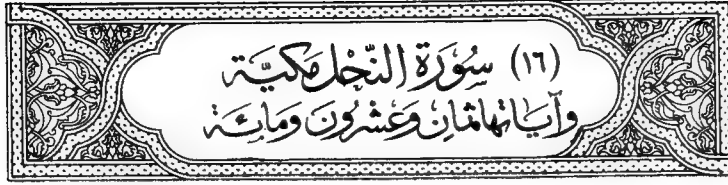 (١٦) سُورَة النَّحْل مَكِيَّة
وَآيَاتهَا ثمَانِ وَعَشْرُونَ وَمَائِة